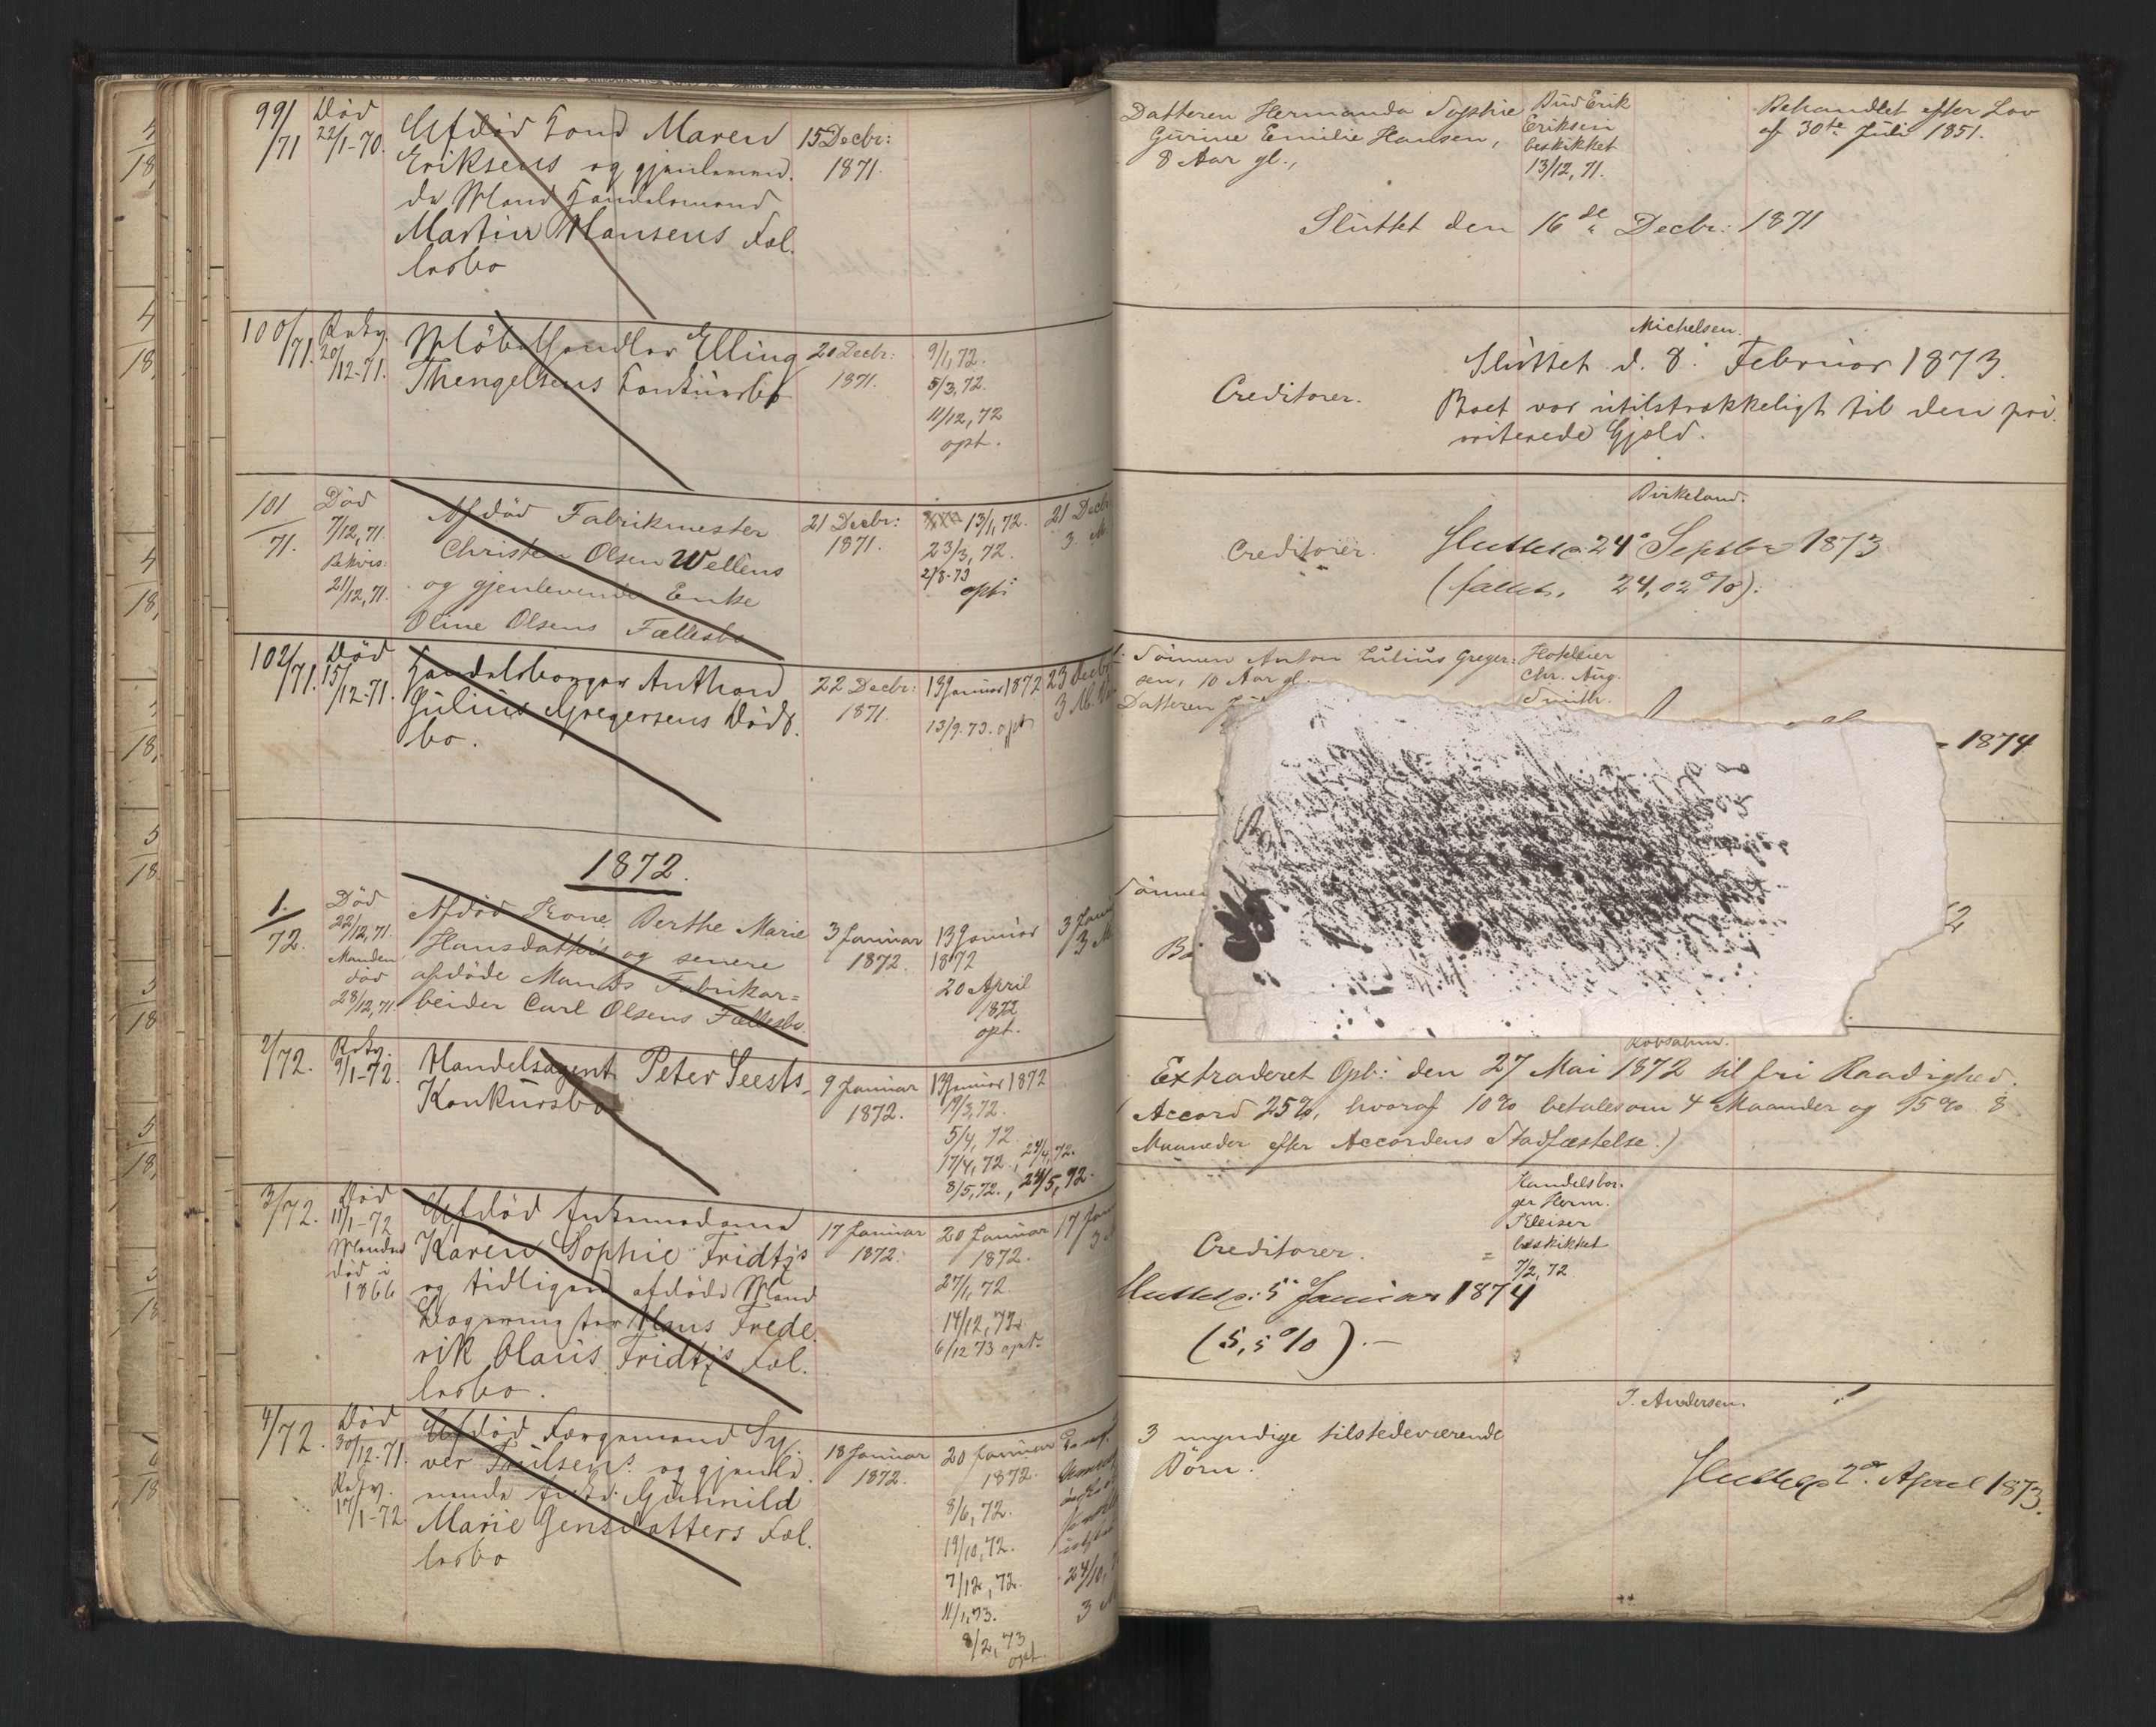 99/71
Död
22/1-70.
Afdød Kone Maren
Eriksens og gjenleven
de Mand Handelsmand
Martin Hansens Fæl
lesbo
15 Decbr:
1871.
Datteren Hermanda Sophie
Gurine Emilie Hansen,
8 Aar gl.,
Bud Erik
Eriksen
beskikket
13/12, 71.
Behandlet efter Lov
af 30te Juli 1851.
Sluttet den 16de Decbr: 1871
100/71.
Rekv.
20/12-71.
Möbelhandler Elling
Thengelsens Konkursbo
20 Decbr:
1871.
9/1, 72.
5/3, 72.
11/12, 72
opt.
Creditorer.
Michelsen.
Sluttet d. 8. Februar 1873.
Boet var utilstrækkeligt til den pri
oriterede Gjæld.
101/71.
Död
7/12, 71.
Rekvis:
21/12, 71.
Afdød Fabrikmester
Christen Olsen Wellens
og gjenlevende Enke
Oline Olsens Fællesbo
21 Decbr:
1871.
13/1, 72.
23/3, 72.
2/8-73
opt:
21 Decbr
3 M.
Creditorer.
Birkeland.
Sluttet 24 Septbr 1873
24,02 %).
102/71.
Död
15/12-71.
Handelsborger Anthon
Julius Gregersens Döds
bo.
22 Decbr:
1871.
13 Januar 1872
13/9. 73. opt
23 Decbr
3 M.
Sönnen Anton Julius Greger-
sen, 10 Aar gl.
Datteren
Hoteleier
Chr. Aug.
Smith.
1874
1872.
1/72.
Död
22/12, 71.
Manden
död
28/12, 71.
Afdød Kone Berthe Marie
Hansdatters og senere
afdøde Mands Fabrikar=
beider Carl Olsens Fællesbo.
3 Januar
1872.
13 Januar
1872
20 April
1872
opt.
3 M
Sönnen
2/72.
Rekv.
9/1-72.
Handelsagent Peter Seests
Konkursbo
9 Januar
1872.
13 Januar 1872
19/3, 72.
5/4, 72.
17/4, 72., 24/4, 72.
8/5, 72., 24/5, 72.
Extraderet Opb: den 27 Mai 1872 til fri Raadighed.
(Accord 25%, hvoraf 10% betales om 4 Maander og 15% 8
Maaneder efter Accordens Stadfæstelse.)
3/72.
Död
11/1-72
Manden
död i
1866
Afdød Enkemadame
Karen Sophie Fridtz's
og tidligere afdøde Mand
Hans Frede
rik Olaus Fridtz's Fæl
lesbo.
17 Januar
1872.
20 Januar
1872.
27/1, 72.
14/12, 72.
6/12 73 opt.
17 Jan
3
Creditorer.
Handelsbor-
ger Herm.
Kleiser
beskikket
7/2, 72.
Sluttet: 5 Januar 1874
(5,5 %).-
4/72.
Död
30/12-71.
Rekv.
17/1-72.
Afdød Færgemand Sy
ver Trulsens og gjenle
vende Enke Gunnild
Marie Jensdatters Fæl
lesbo
18 Januar
1872.
20 Januar
1872.
8/6, 72.
19/10, 72.
7/12, 72.
11/1, 73.
8/2, 73
opt.
3
3 myndige tilstedeværende
Börn.
T. Andersen.
Sluttet 2. April 1873.